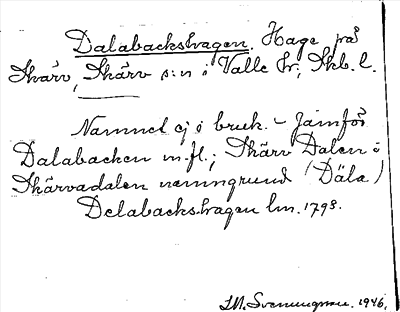 Dalabackshagen. Hage på
Skärv, Skärv s:n i Valle hr, Skb. l.
Namnet ej i bruk. – Jämför
Dalabacken m.fl.; Skärv Dalen ö
Skärvadalen namngrund (Däla)
Delabackshagen lm. 1793.
S.M. Svenungsson. 1946.